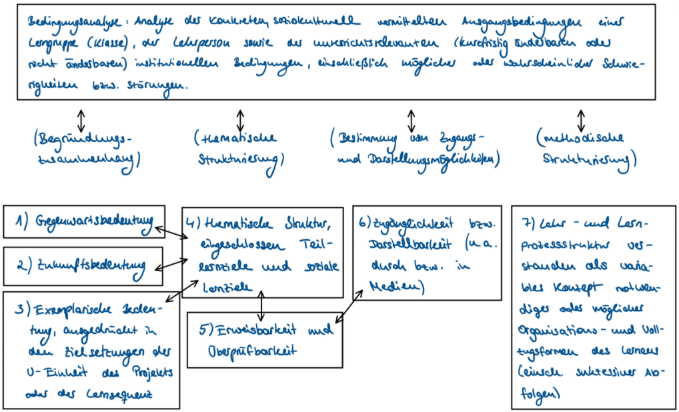 Bedingungsanalyse: Analyse der konkreten, soziokulturell vermittelten Ausgangsbedingungen einer
Lerngruppe (Klasse), der Lehrperson sowie der unterrichtsrelevanten (kurzfristig änderbaren oder
nicht änderbaren) institutionellen Bedingungen, einschließlich möglicher oder wahrscheinlicher Schwie-
rigkeiten bzw. Störungen.
(Begründungs-
zusammenhang)
(thematische
Strukturierung)
(Bestimmung von Zugangs-
und Darstellungsmöglichkeiten)
(methodische
Strukturierung)
1) Gegenwartsbedeutung
2) Zukunftsbedeutung
3) Exemplarische Bedeu-
tung, ausgedrückt in
den Zielsetzungen der
U-Einheit des Projekts
oder der Lernsequenz
4) thematische Struktur,
eingeschlossen Teil-
lernziele und soziale
Lernziele
5) Erweisbarkeit und
Überprüfbarkeit
6) Zugänglichkeit bzw.
Darstellbarkeit (u.a.
durch bzw. in
Medien)
7) Lehr- und Lern-
prozessstruktur ver-
standen als varia-
bles Konzept notwen-
diger oder möglicher
Organisations- und Voll-
zugsformen des Lernens
(einsch. sukzessiver Ab-
folgen)